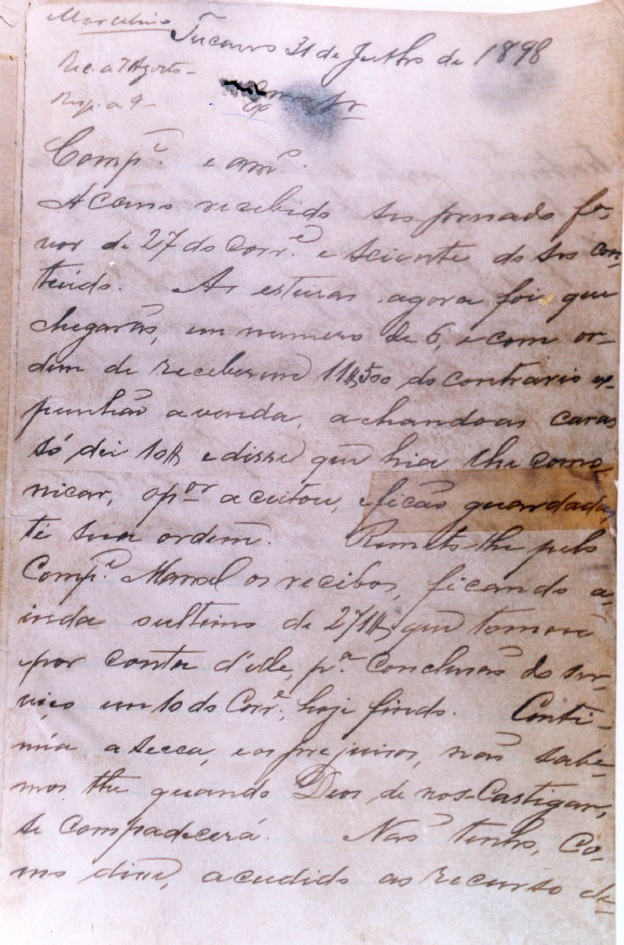 Marcelino
Tucano 31 de Julho de 1898
Rec. a 7 Agosto -
Resp. a 9 -
Comp.e e am.o
Acauso recebido seo presado fa
vor de 27 do corr.e e sciente do seo con
theudo. As esturas agora foi que
chegarão, em numero de 6, e com or-
dem de receberem 11$500 do contrario ex-
punhão a venda, achandoas caras
só dei 10$ e disse que hia lhe como
nicar, o p.or aceitou, e ficão guardadas,
té sua ordem. Remeto-lhe pelo
Comp.e Manoel os recibos, ficando a-
inda o ultimo de 27$ que tomou
por conta d'elle, p.a conclusão do ser-
viço em 10 do Corr.e, hoje findo. Conti-
núa a secca, e os prejuisos, não sabe-
mos the quando Deos, de nos Castigar,
se compadecerá. Não tenho, co-
mo disse, acudido ao recurso de